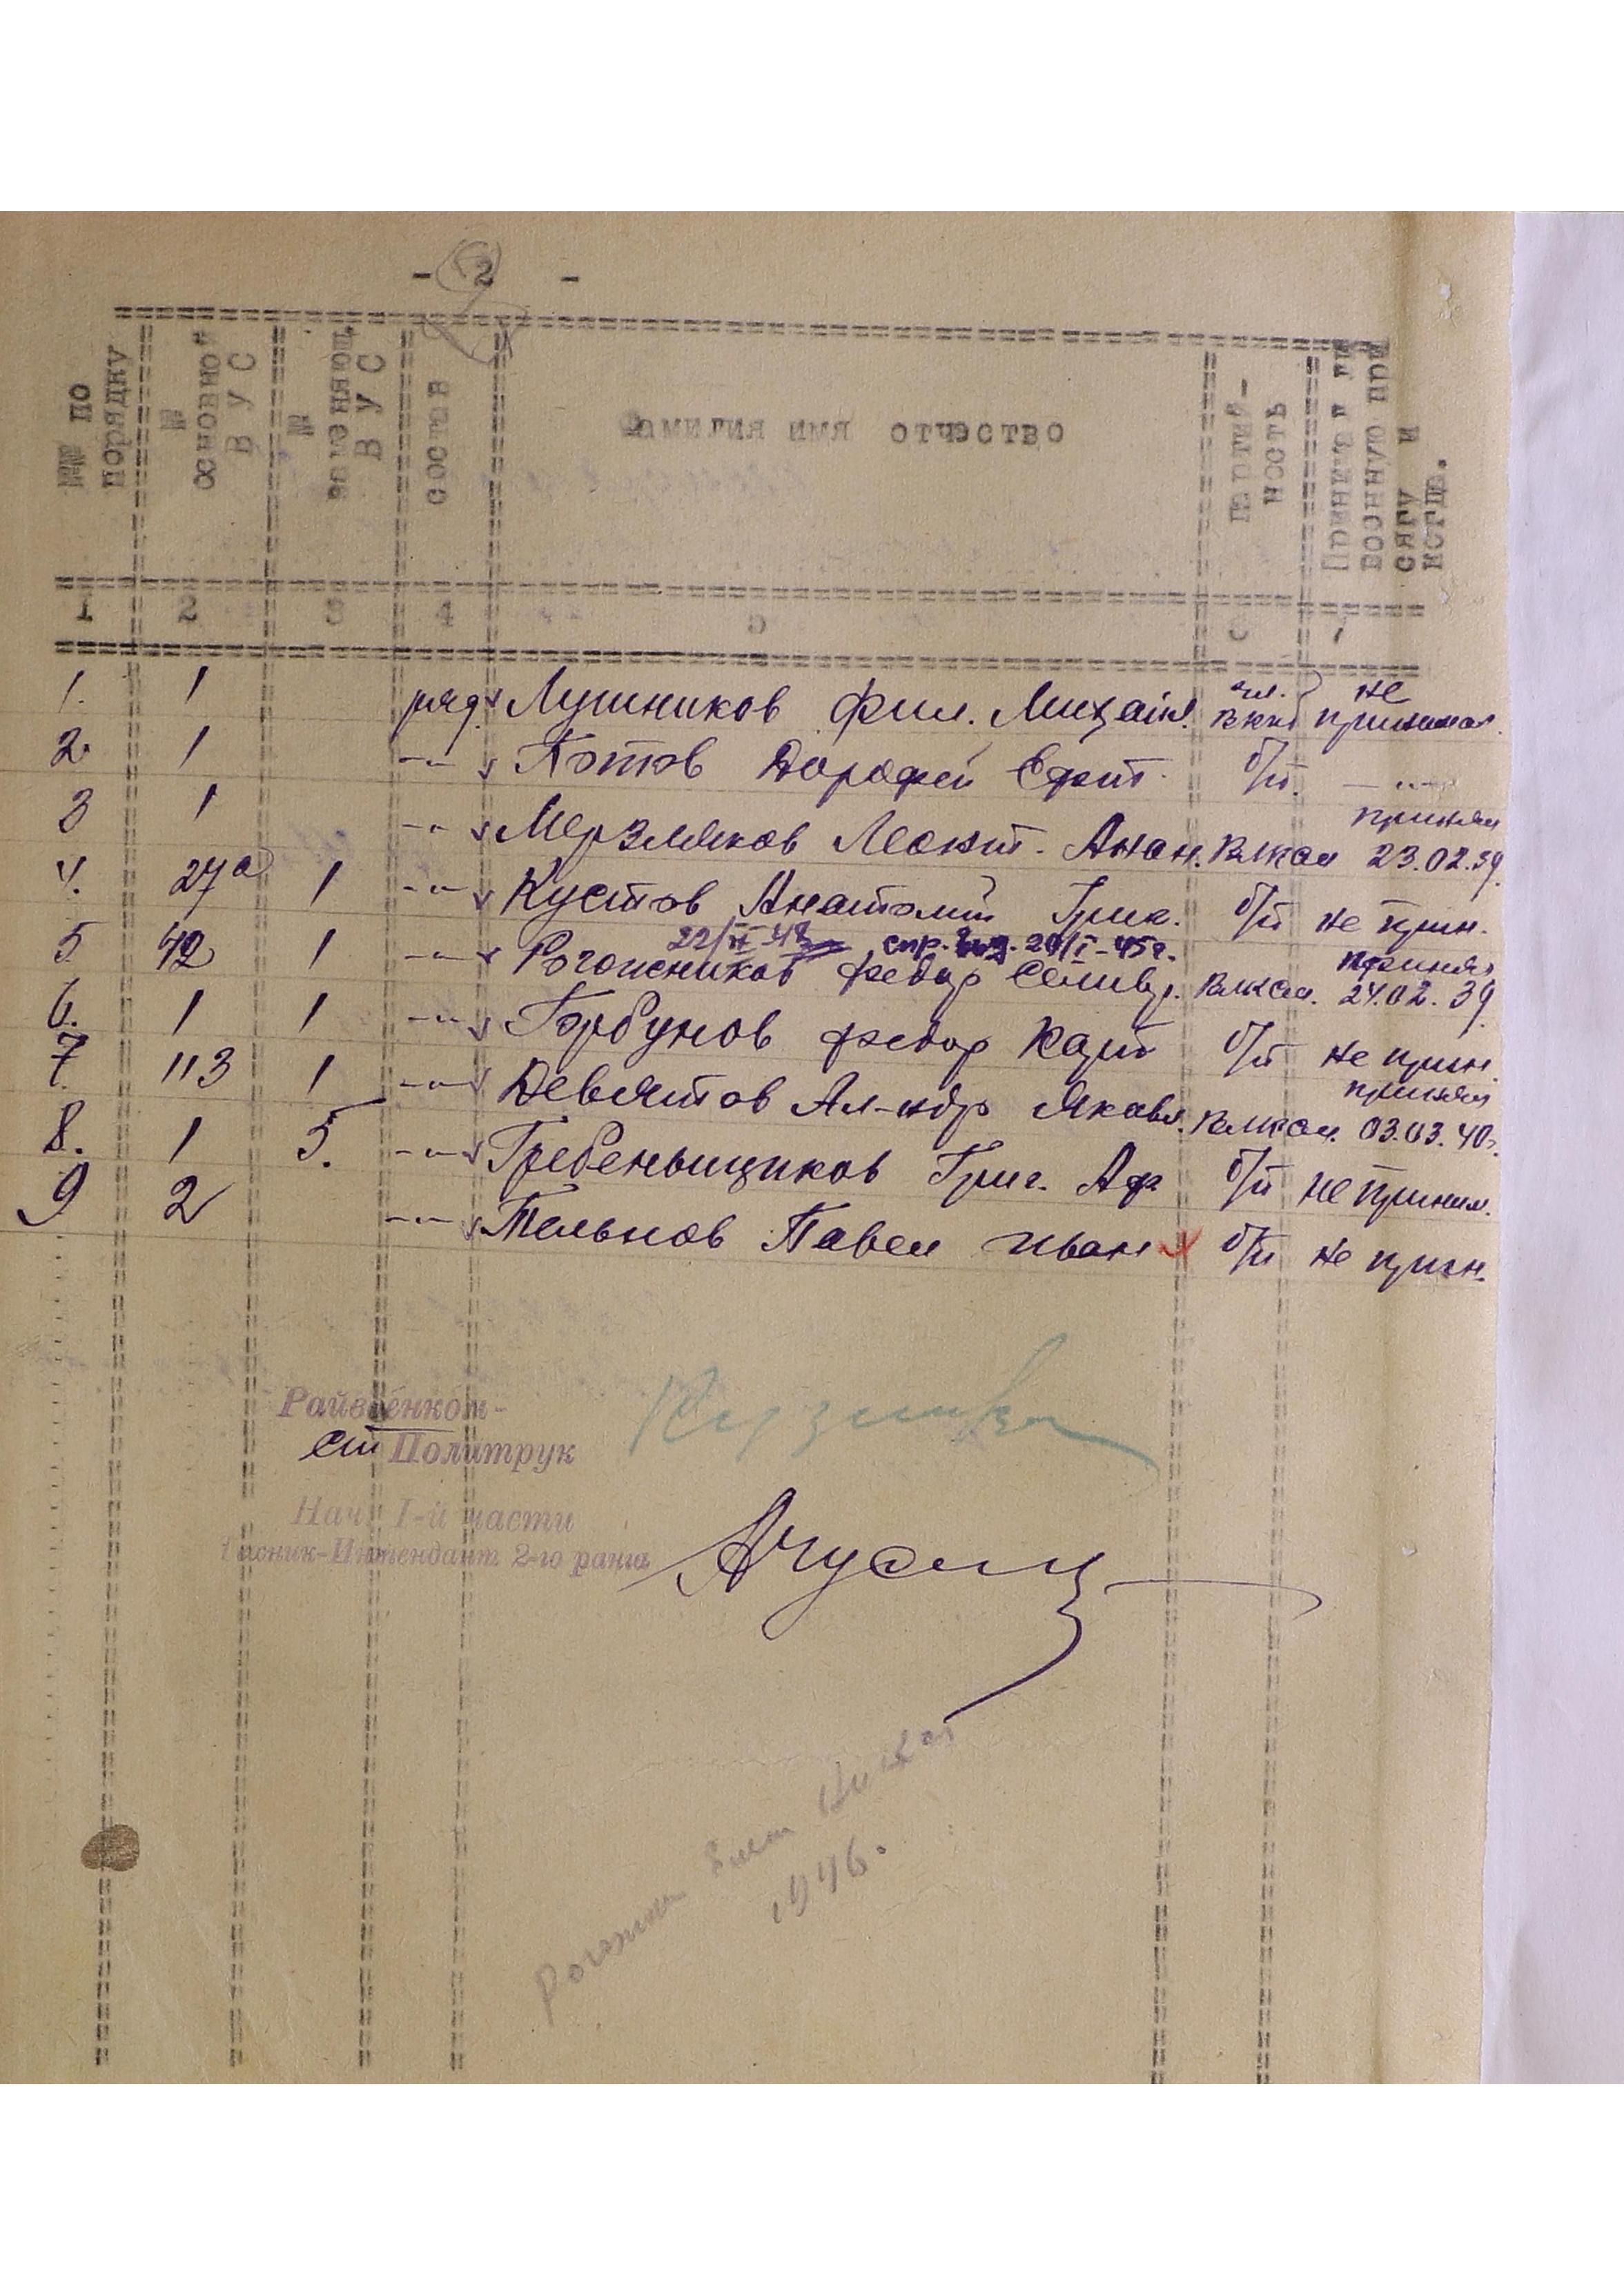 - 2 -
№№ по порядку
№ основной ВУС
№ заменяющ ВУС
состав
Фамилия имя отчество
партий-ность
Принял ли военную присягу и
1 2 3 4 5
1. 1 ряд. Лушников Фил. Михайл. чл. ВКПб не принимал
2. 1 -"- Котов Дорофей Ефит. б/п. -"-
3 1 -"- Мерзляков Леонт. Анан. ВЛКСМ принял 23.02.39.
4. 27а 1 -"- Кустов Анатолий Григ. б/п не прин.
22/II-43 спр. выд. 20/I-45г.
5. 42 1 -"- Рогожников Федор Селивер. ВЛКСМ. принял 24.02.39
6. 1 1 -"- Горбунов Федор Карп б/п не прин.
7. 113 1 -"- Девятов Ал-ндр Яковл. ВЛКСМ. принял 03.03.40г.
8. 1 5. -"- Гребеньщиков Григ. Аф б/п не приним.
9 2 -"- Тельнов Павел Иван б/п не прин.
Райвоенком-
ст Политрук
Нач. I-й части
Техник-Интендант 2-го ранга
1946.